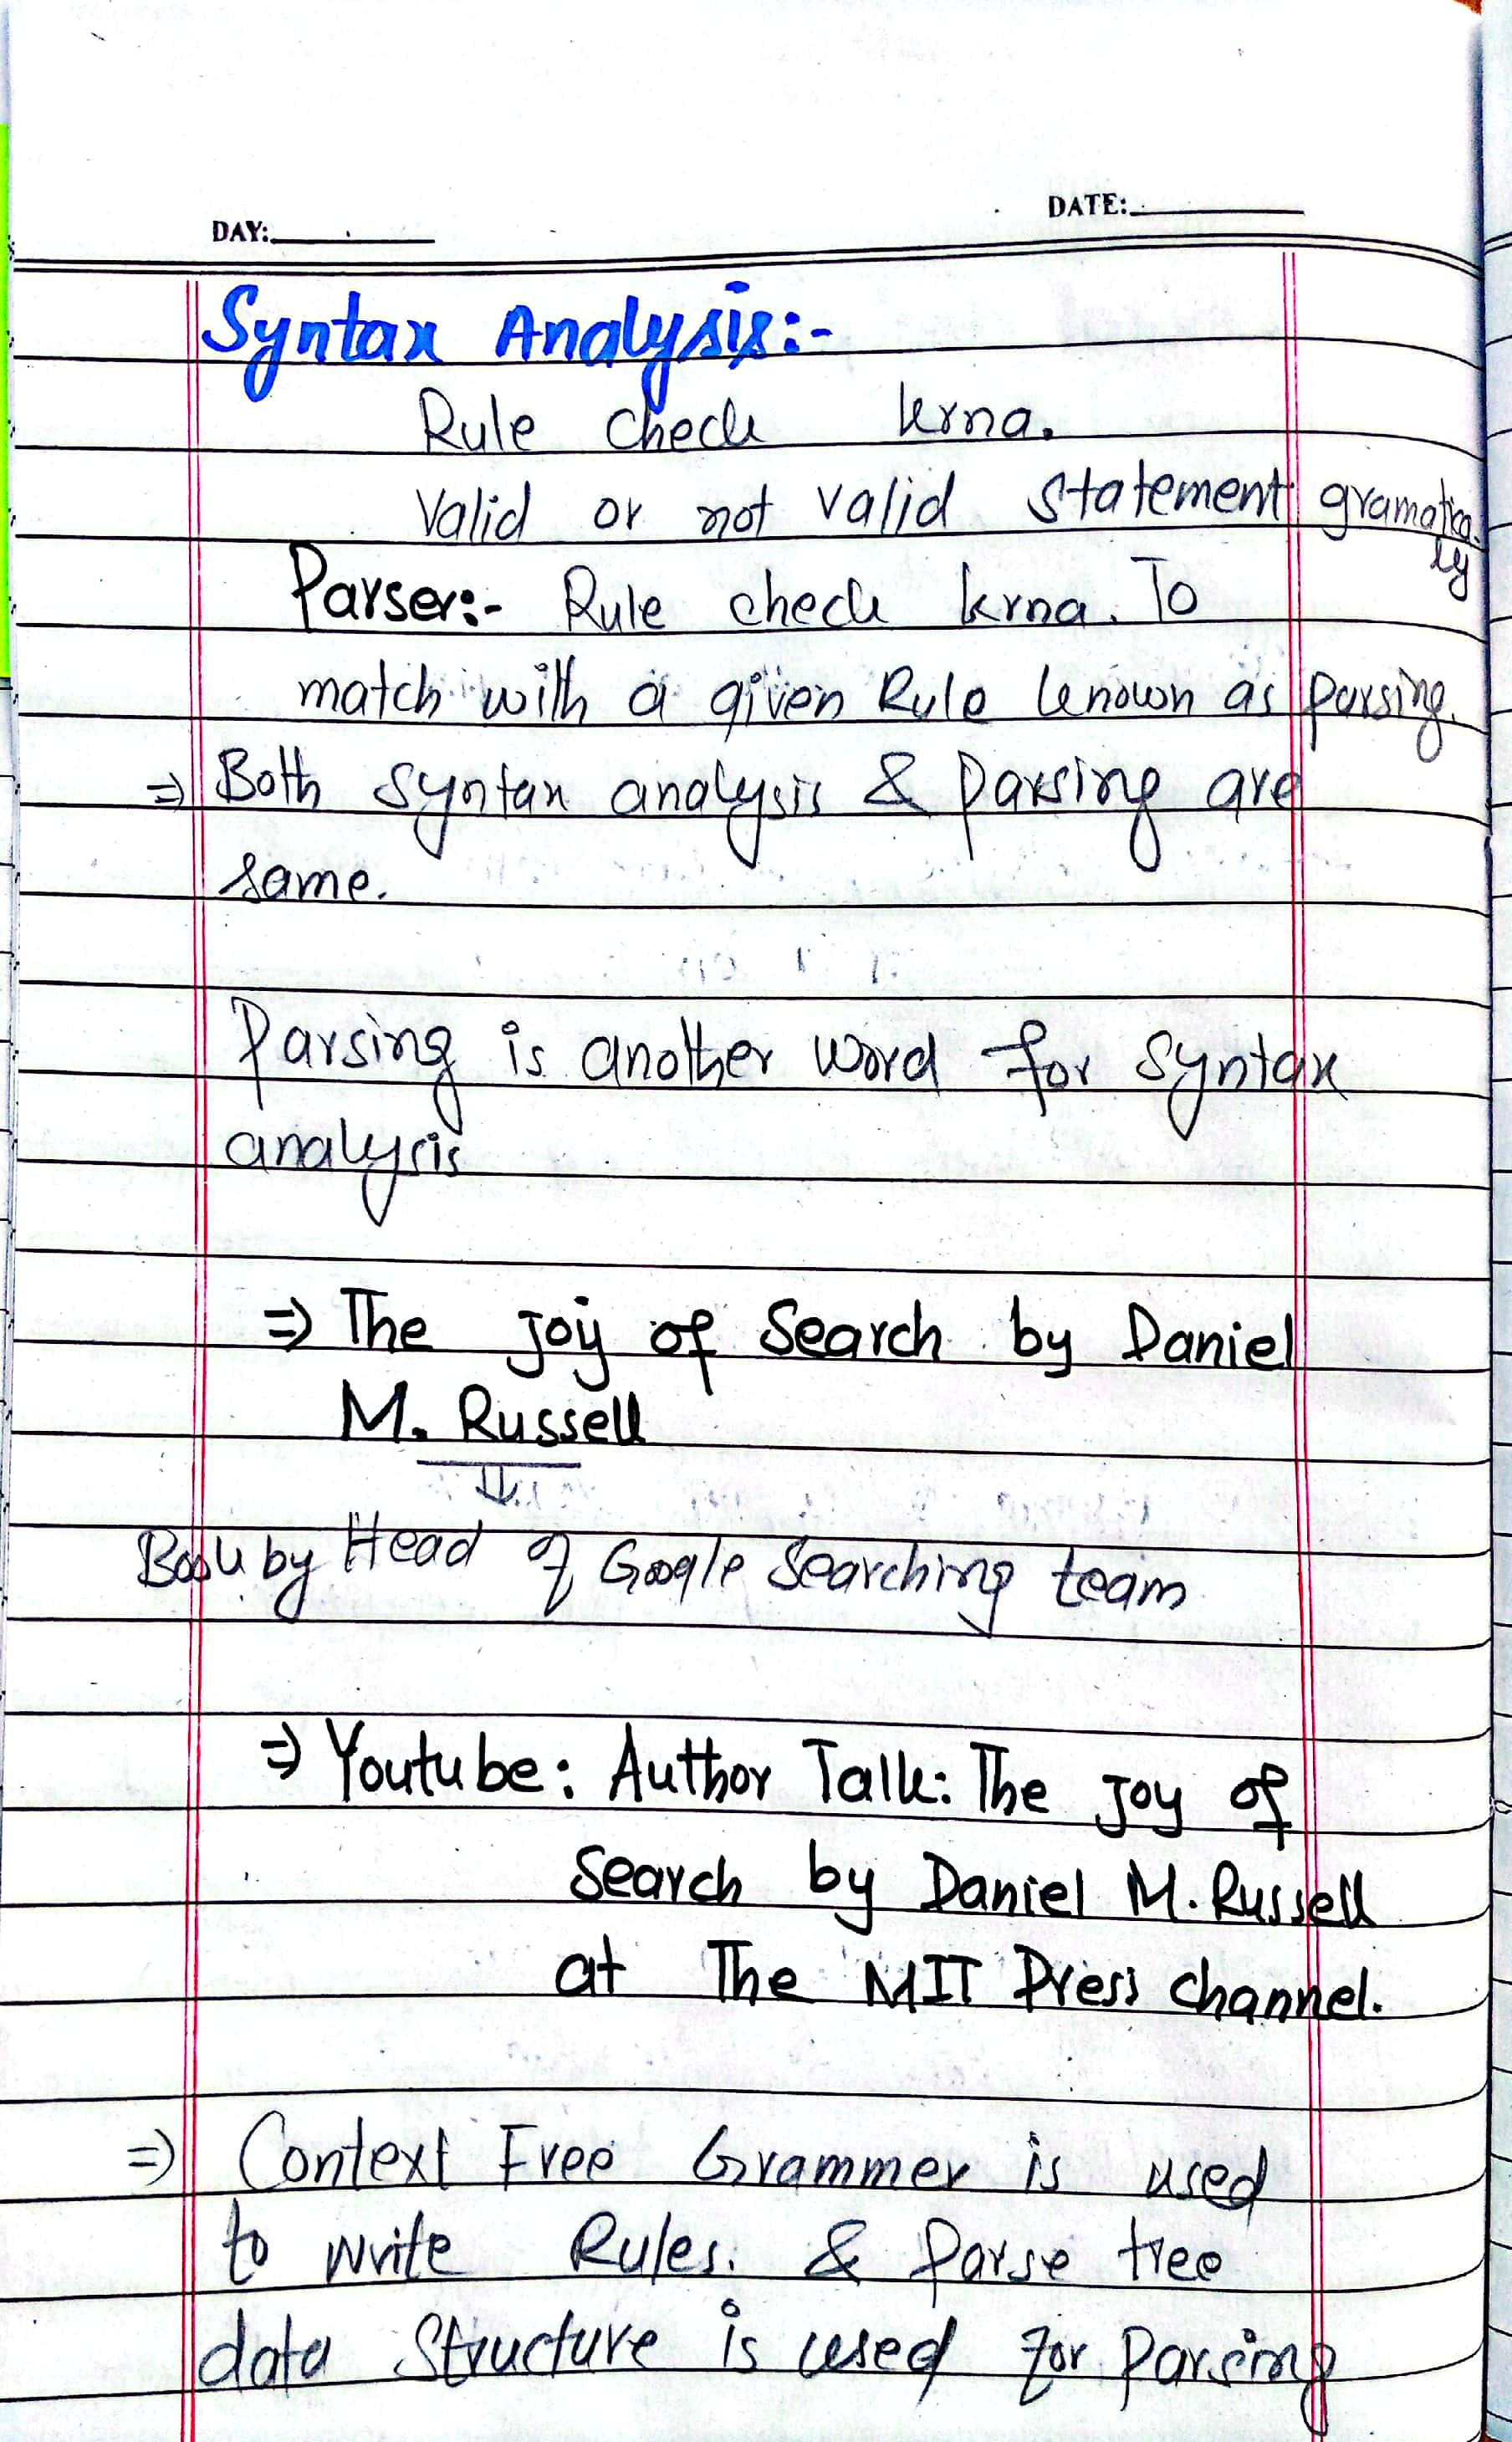 DAY:
DATE:
Syntax Analysis:-
Rule check krna.
Valid or not valid statement gramatica-
ly
Parser:- Rule check krna. To
match with a given Rule known as parsing.
⇒ Both syntax analysis & parsing are
same.
Parsing is another word for syntax
analysis
⇒ The Joy of Search by Daniel
M. Russell
Book by Head of Google Searching team
⇒ Youtube: Author Talk: The Joy of
Search by Daniel M. Russell
at The MIT Press channel.
⇒ Context Free Grammer is used
to write Rules. & Parse tree
data structure is used for Parsing